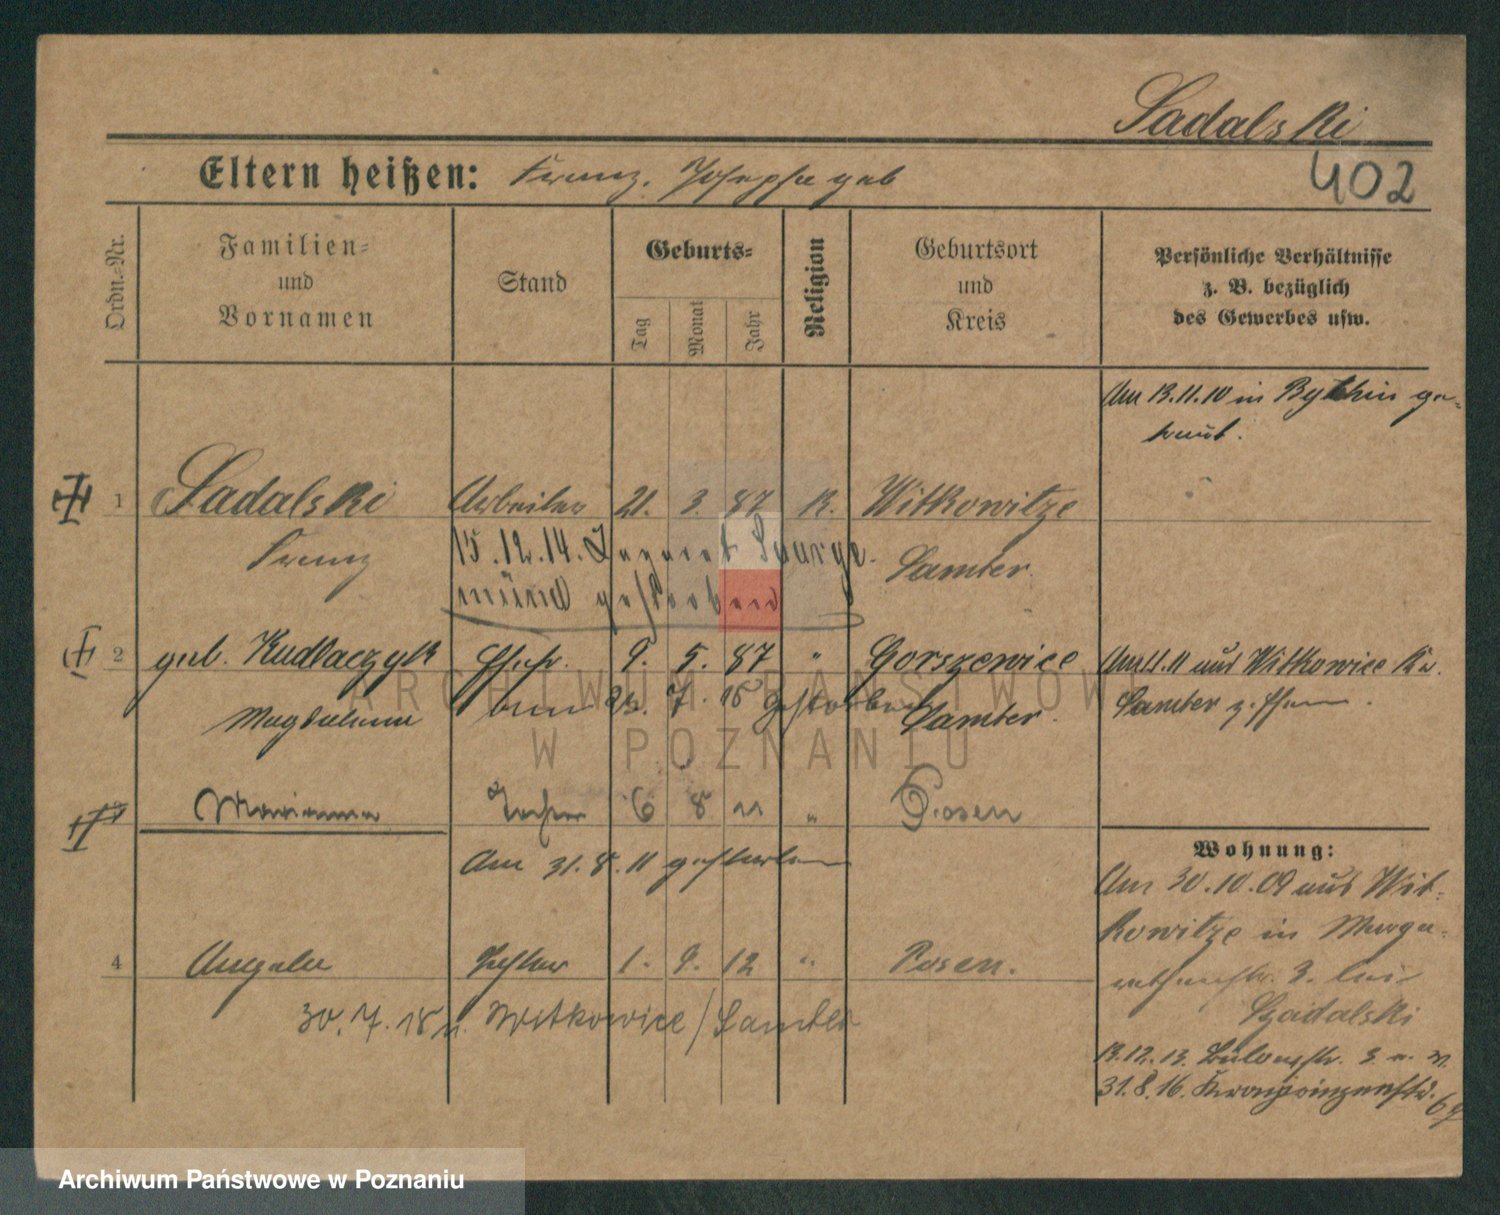 Sadalski
402
Eltern heißen: Franz, Josepha geb
Ordn.-Nr.
Familien-
und
Vornamen
Stand
Geburts-
Tag
Monat
Jahr
Religion
Geburtsort
und
Kreis
Persönliche Verhältnisse
z. B. bezüglich
des Gewerbes usw.
Am 13.11.10 in Bythin ge-
traut.
1 Sadalski Arbeiter 21. 3. 87 K. Witkowitze
Franz
Samter
15.12.14. Lazarett Saarge-
münd gestorben
2 geb. Kudlaczyk Ehefr. 9. 5. 87 " Gorszewice
Magdalena
Samter.
am 23. 7. 18 gestorben
Am 11.11 aus Witkowice Kr.
Samter z. Ehem.
Marianna Tochter 6 8 11 " Posen
Am 31.8.11 gestorben
4 Angela Tochter 1. 9. 12 " Posen.
30.7.18 n. Witkowice/Samter
Wohnung:
Am 30.10.09 aus Wit-
kowitze in Marga-
rethenstr. 3. bei
Szadalski
13.12.13. Bülowstr. 3
31.8.16. Kronprinzenstr.
ARCHIWUM PAŃSTWOWE
W POZNANIU
Archiwum Państwowe w Poznaniu